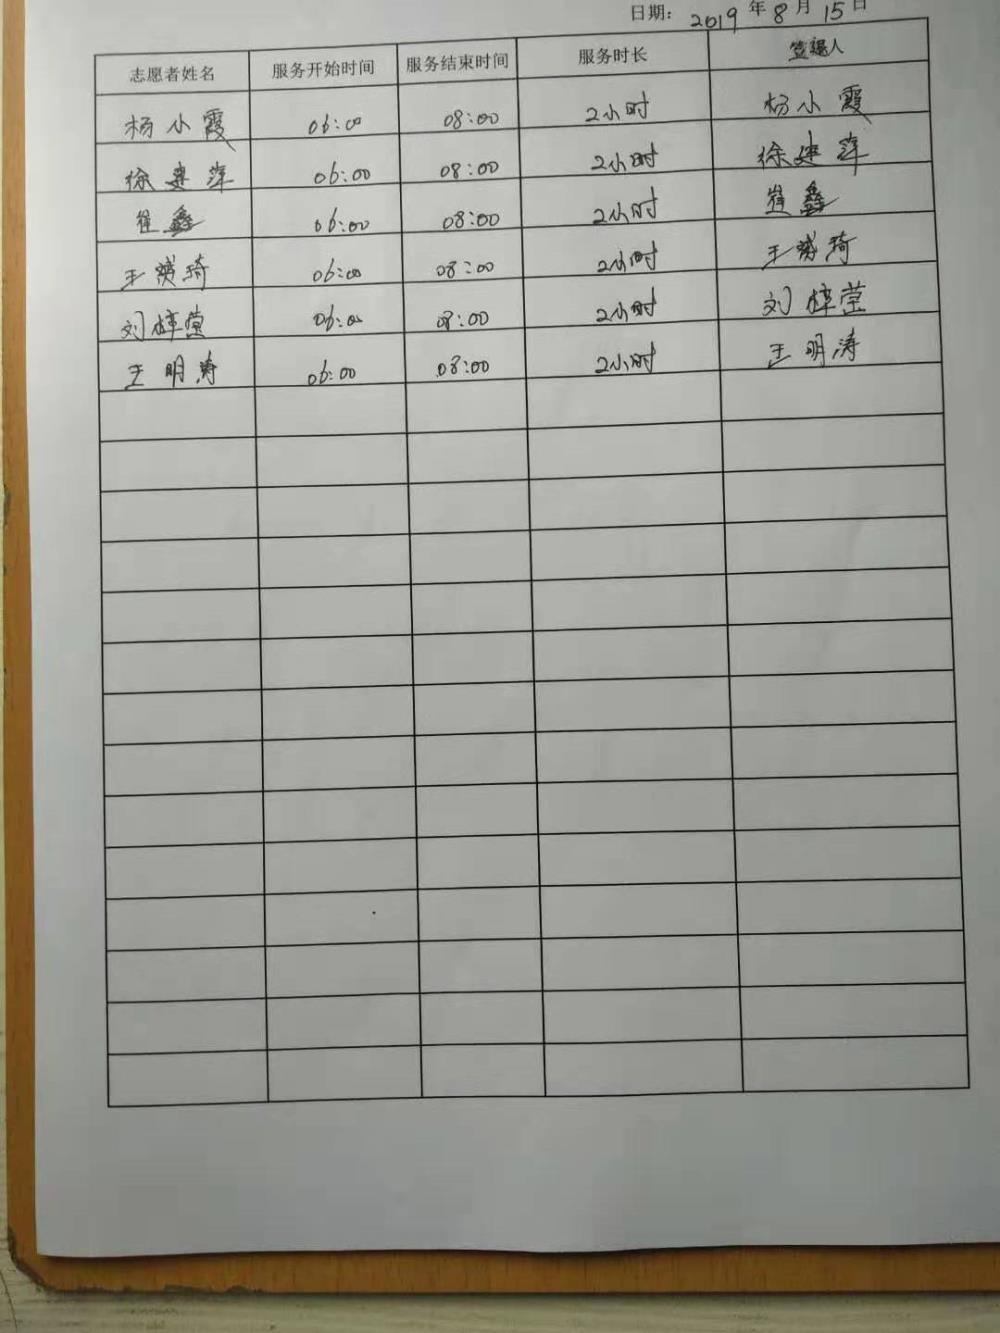 日期： 2019 年 8 月 15 日
志愿者姓名 服务开始时间 服务结束时间 服务时长 签退人
杨小霞 06:00 08:00 2小时 杨小霞
徐建萍 06:00 08:00 2小时 徐建萍
崔鑫 06:00 08:00 2小时 崔鑫
王 琦 06:00 08:00 2小时 王 琦
刘梓莹 06:00 08:00 2小时 刘梓莹
王明涛 06:00 08:00 2小时 王明涛